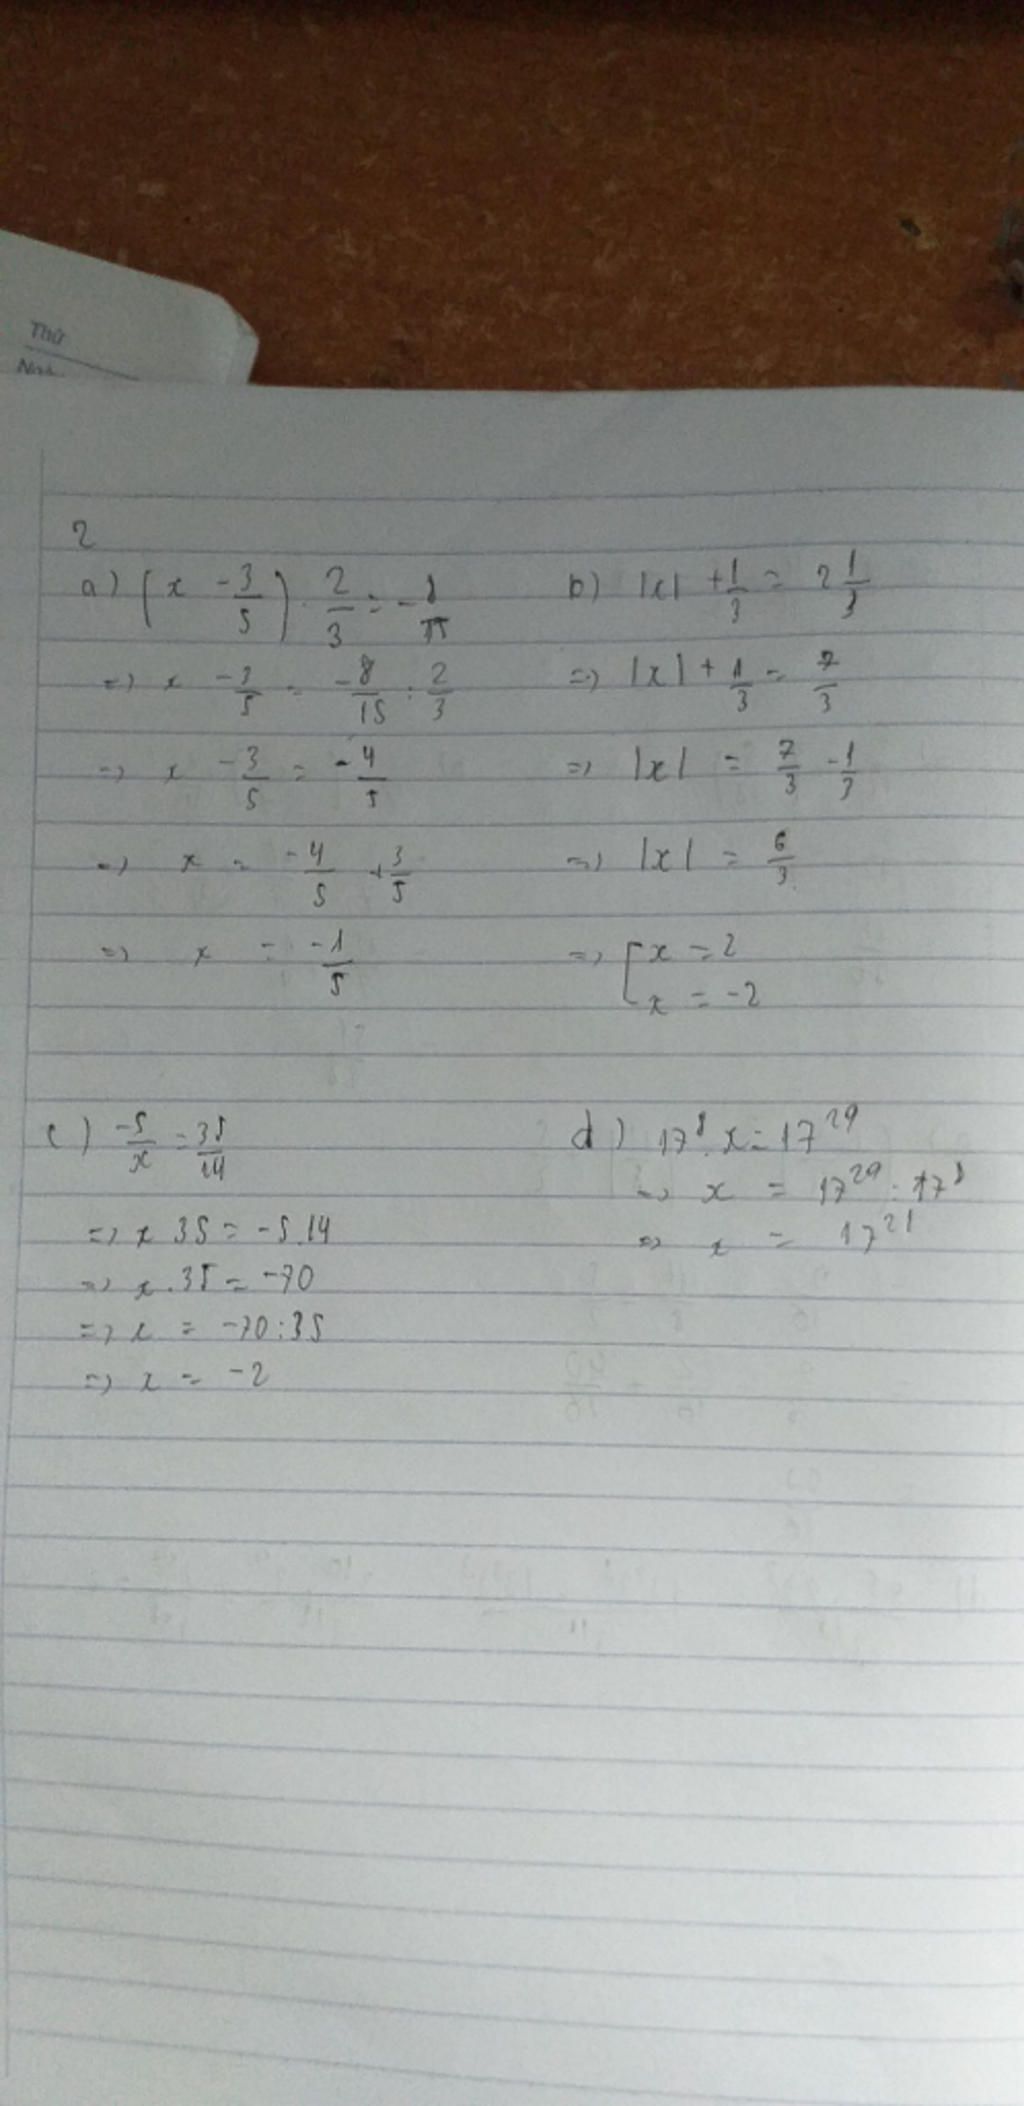 Thứ
2
a) (x - 3/5) . 2/3 = - 8/15
=> x - 3/5 = - 8/15 : 2/3
=> x - 3/5 = - 4/5
=> x = - 4/5 + 3/5
=> x = - 1/5
b) |x| + 1/3 = 2 1/3
=> |x| + 1/3 = 7/3
=> |x| = 7/3 - 1/3
=> |x| = 6/3
=> [ x = 2
x = -2
c) -5/x = 35/14
=> x 35 = -5.14
=> x.35 = -70
=> x = -70:35
=> x = -2
d) 17⁸.x = 17²⁹
=> x = 17²⁹ : 17⁸
=> x = 17²¹